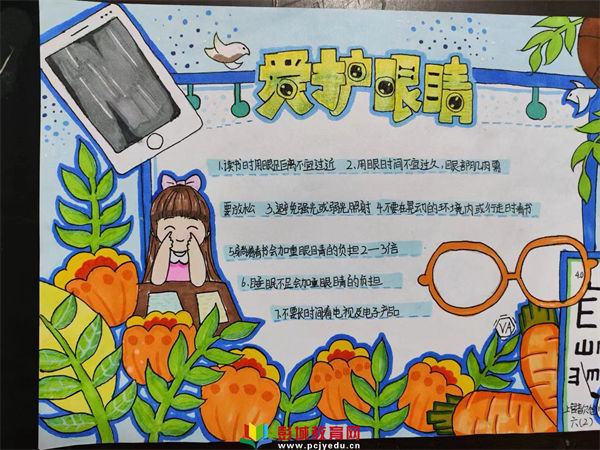 爱护眼睛
1.读书时用眼距离不宜过近 2.用眼时间不宜过久,眼部肌肉需
要放松 3.避免强光或弱光照射 4.不要在晃动的环境内或行走时看书
5.躺着看书会加重眼睛的负担2—3倍
6.睡眠不足会加重眼睛的负担
7.不要长时间看电视及电子产品
VA
4.0
E
六(2)
彭城教育网
www.pcjyedu.cn